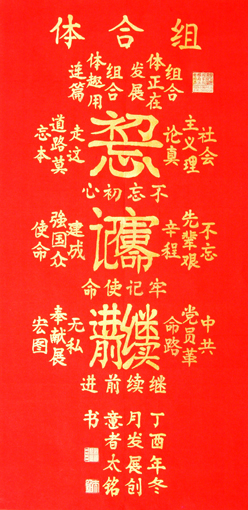 组合体
组合体正在发展
组合体趣用连篇
社会主义理论真
走这道路莫忘本
不忘初心
不忘先辈艰辛程
建成强国众使命
牢记使命
中共党员革命路
无私奉献展宏图
继续前进
丁酉年冬
月发展创
意者太铭
书